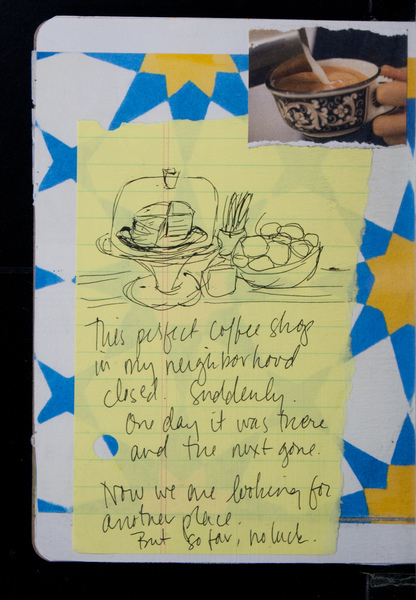 This perfect coffee shop
in my neighborhood
closed. Suddenly.
One day it was there
and the next gone.
Now we are looking for
another place.
But so far, no luck.